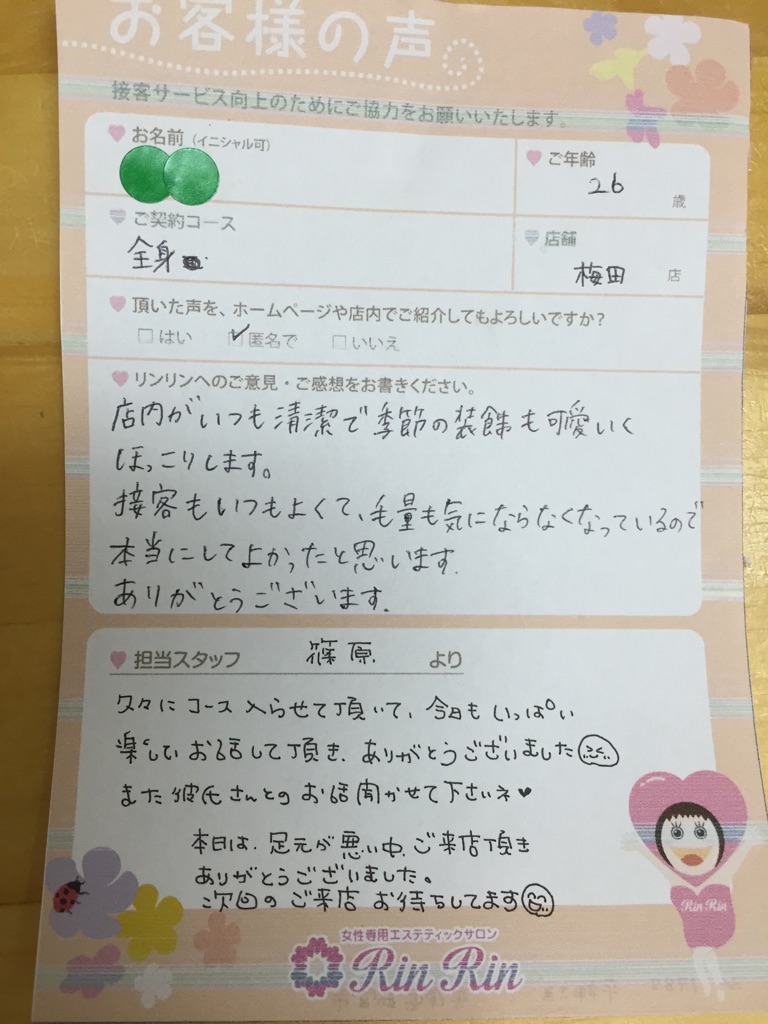 お客様の声
接客サービス向上のためにご協力をお願いいたします。
お名前（イニシャル可）
ご年齢
26
歳
ご契約コース
全身
店舗
梅田 店
頂いた声を、ホームページや店内でご紹介してもよろしいですか？
はい 匿名で いいえ
リンリンへのご意見・ご感想をお書きください。
店内がいつも清潔で季節の装飾も可愛いく
ほっこりします。
接客もいつもよくて、毛量も気にならなくなっているので
本当にしてよかったと思います.
ありがとうございます.
担当スタッフ 篠原 より
久々に コース 入らせて頂いて、今日も いっぱい
楽しい お話して頂き、ありがとうございました
また 彼氏さんとの お話 聞かせて下さいネ♥
本日は、足元が悪い中、ご来店頂き
ありがとうございました。
次回の ご来店 お待ちしてます
Rin Rin
女性専用エステティックサロン
Rin Rin